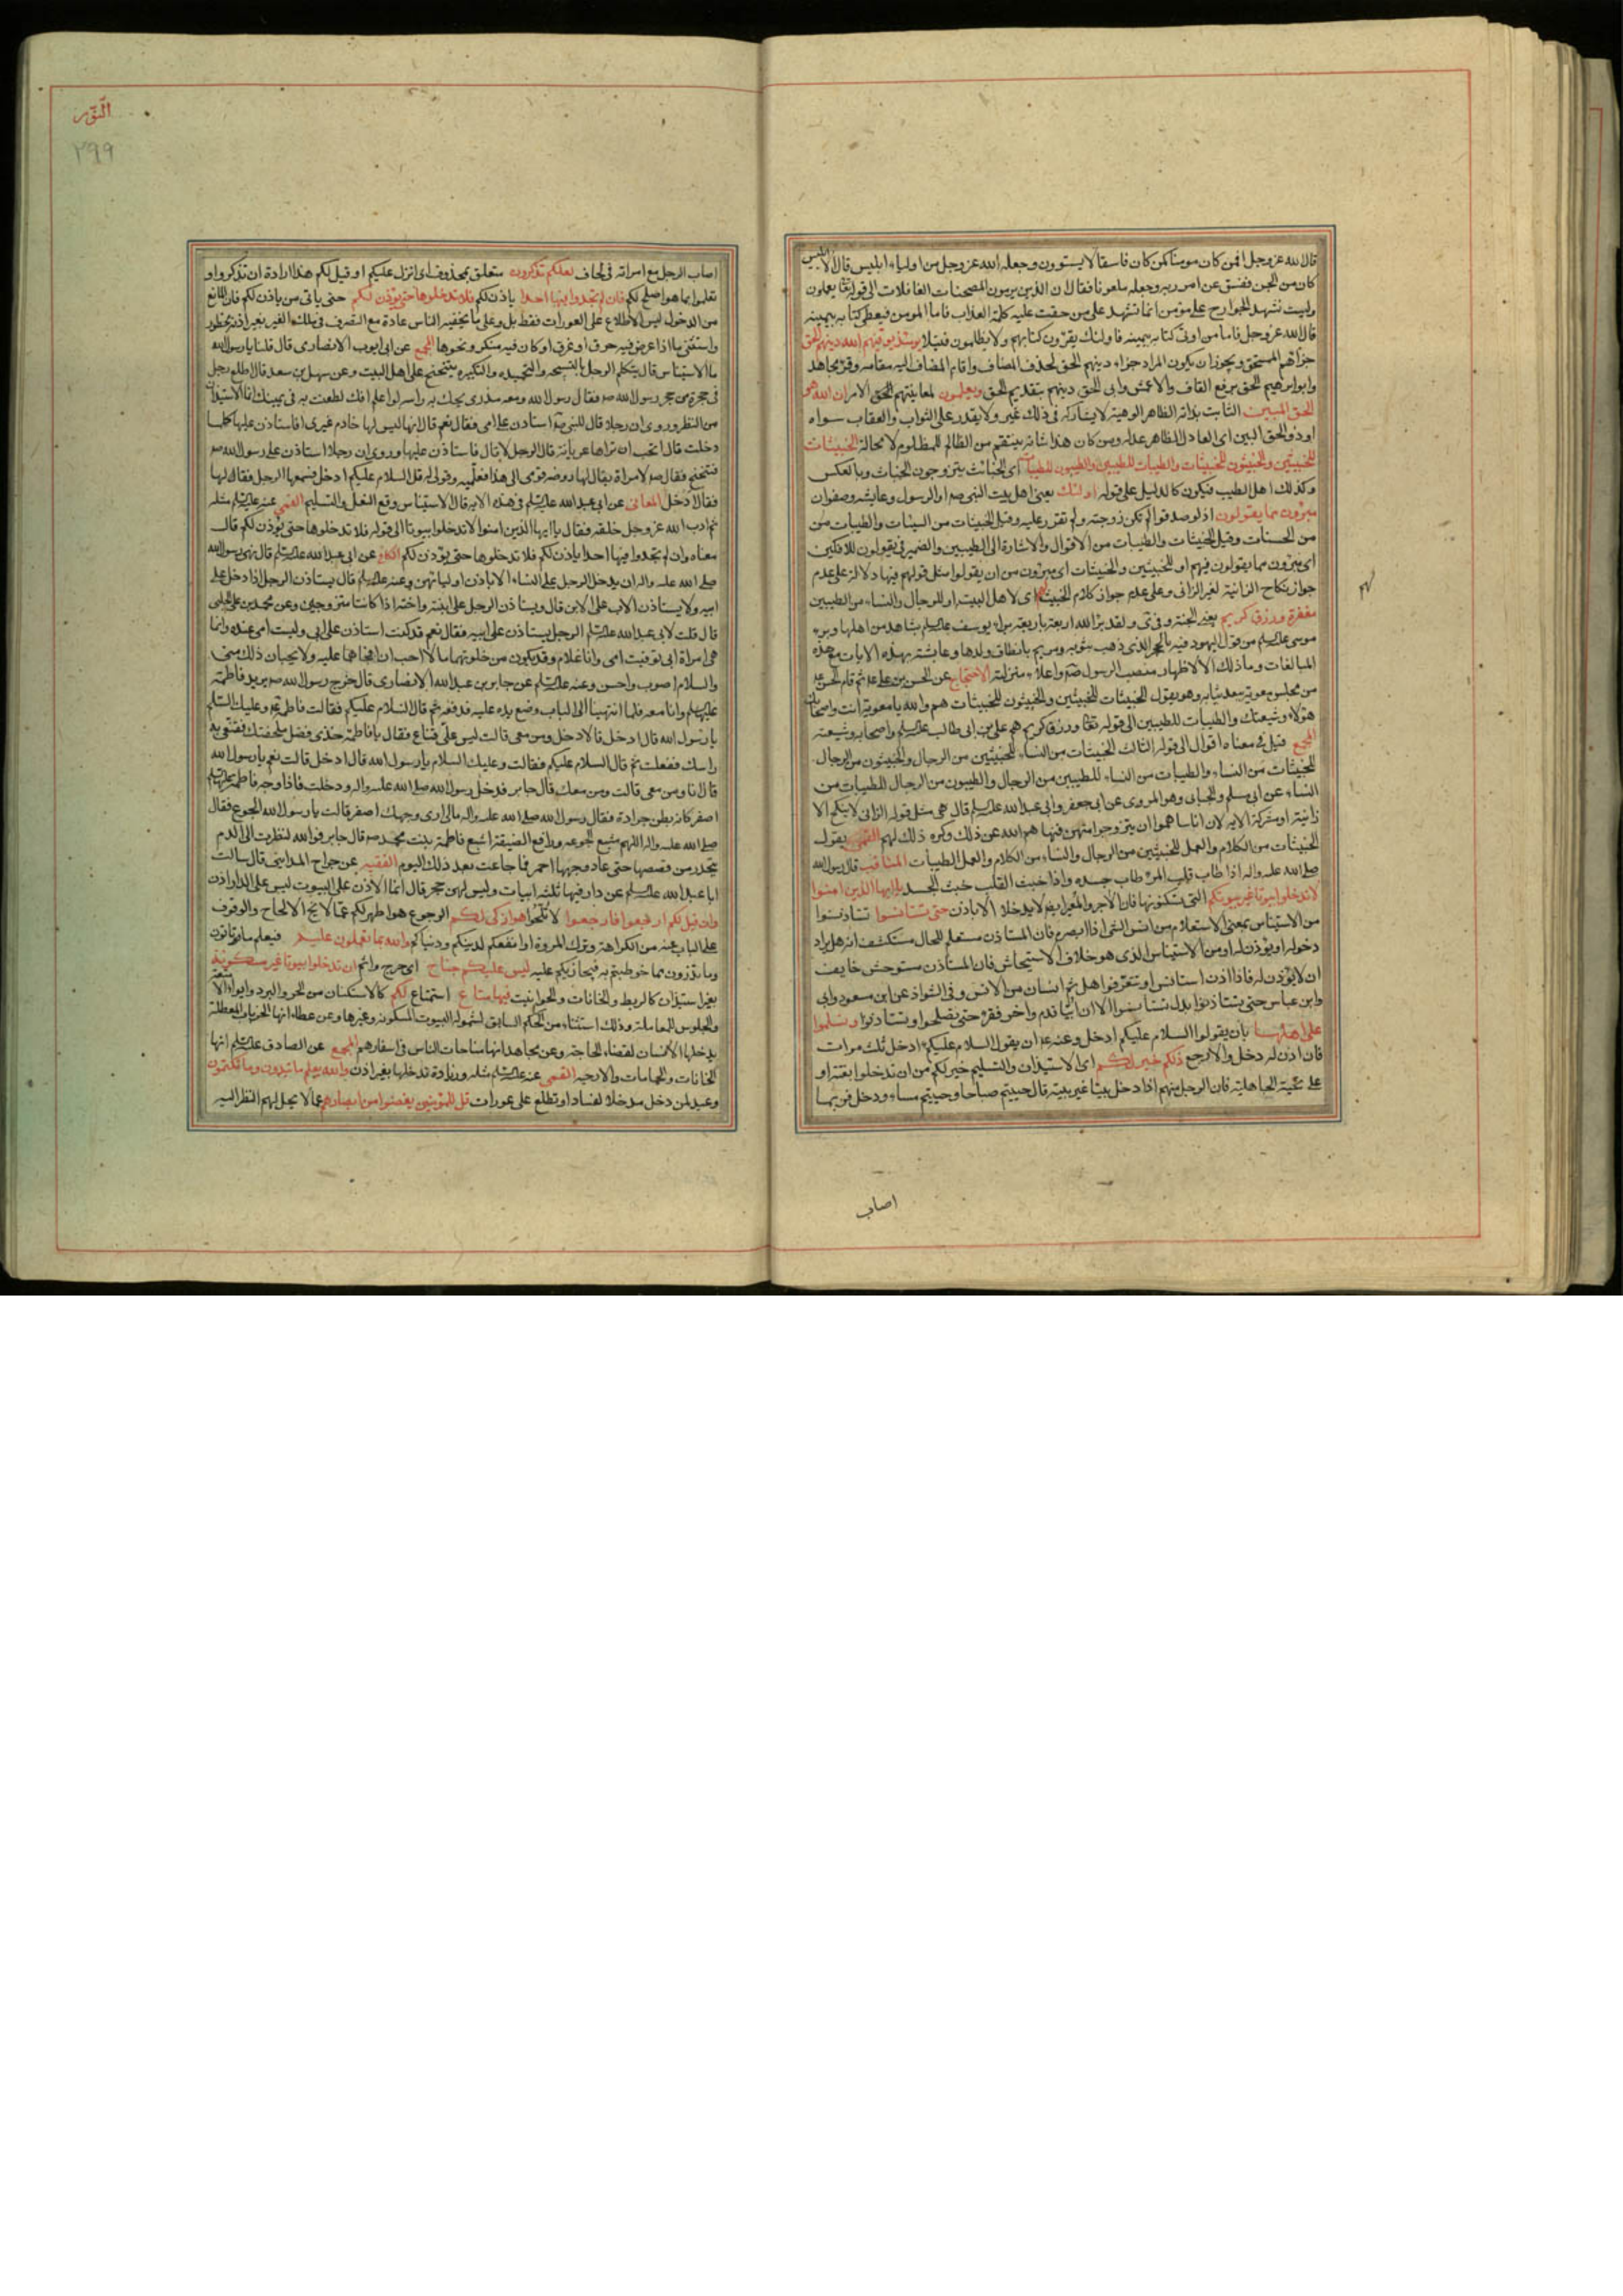 قال الله عز وجل افمن كان مومنا كمن كان فاسقا لا يستوون وجعله الله عز وجل من اولياء ابليس قال الا ابليس
كان من الجن ففسق عن امر ربه وجعله ملعونا فقال ان الذين يرمون المحصنات الغافلات الى قوله تعالى يعملون
وليست تشهد الجوارح على مؤمن انما تشهد على من حقت عليه كلمة العذاب فاما المومن فيعطى كتابه بيمينه
قال الله عز وجل فاما من اوتى كتابه بيمينه فاولئك يقرؤن كتابهم ولا يظلمون فتيلا يومئذ يوفيهم الله دينهم الحق
جزاهم المستحق ويجوز ان يكون المراد جزاء دينهم الحق فحذف المضاف واقام المضاف اليه مقامه وقرئ مجاهد
الحق برفع القاف والاعمش وابى الحق دينهم بتقديم الحق ويعلمون لمعاينتهم الحق الامر ان الله هو
الحق المبين الثابت بذاته الظاهر الوهيته لا يشاركه فى ذلك غيره ولا يقدر على الثواب والعقاب سواه
او ذو الحق البين اى العادل الظاهر عدله ومن كان هذا شانه ينتقم من الظالم للمظلوم لا محالة الخبيثات
للخبيثين والخبيثون للخبيثات والطيبات للطيبين والطيبون للطيبات اى الخبائث يتزوجون الخباث وبالعكس
وكذلك اهل الطيب فيكون كالدليل على قوله اولئك يعنى اهل بيت النبى صم او الرسول وعايشه وصفوان
مبرؤن مما يقولون اذ لو صدقوا لم تكن زوجته ولم تقرر عليه وقيل الخبيثات من السيئات والطيبات من
من الحسنات وقيل الخبيثات والطيبات من الاقوال والاشارة الى الطيبين والضمير فى يقولون للافكين
اى مبرؤن مما يقولون فيهم او للخبيثين والخبيثات اى مبرؤن من ان يقولوا مثل قولهم فيها دلالة على عدم
جواز نكاح الزانية لغير الزانى وعلى عدم جواز كلام الخبيث اى لاهل البيت او للرجال والنساء من الطيبين
مغفرة ورزق كريم يعنى الجنة ولقد برا الله اربعة باربعة براء يوسف عليه السلام بشاهد من اهلها وبرء
موسى عليه السلام من قول اليهود فيه بالحجر الذى ذهب بثوبه ومريم بانطاق ولدها وعايشة بهذه الايات مع هذه
المبالغات وما ذلك الا لاظهار منصب الرسول صم واعلاء منزلته الاحتجاج عن الحسن بن على ثم قام الحسن
من مجلس معوية ثيابه وهو يقول الخبيثات للخبيثين والخبيثون للخبيثات هم والله يا معوية انت واصحابك
هؤلاء وشيعتك والطيبات للطيبين الى قوله تعالى ورزق كريم هم على بن ابى طالب عليه السلام واصحابه وشيعته
المجمع قيل فى معناه اقوال الى قوله الثالث الخبيثات من النساء للخبيثين من الرجال والخبيثون من الرجال
للخبيثات من النساء والطيبات من النساء للطيبين من الرجال والطيبون من الرجال للطيبات من
النساء عن ابى مسلم والجبائى وهو المروى عن ابى جعفر وابى عبد الله عليه السلام قال هى مثل قوله الزانى لا ينكح الا
زانية او مشركة الاية لان اناسا هموا ان يتزوجوا منهن فنهاهم الله عن ذلك وكره ذلك لهم القمى يقول
الخبيثات من الكلام والعمل للخبيثين من الرجال والنساء من الكلام والعمل الطيبات المناقب قال رسول الله
صلى الله عليه واله اذا طاب قلب المرء طاب جسده واذا خبث القلب خبث الجسد يا ايها الذين امنوا
لا تدخلوا بيوتا غير بيوتكم التى تسكنونها فان الاجر والمعير ايضا لا يدخلا الا باذن حتى تستانسوا تستاذنوا
من الاستيناس بمعنى الاستعلام من انس الشئ اذا ابصره فان المستاذن مستعلم للحال مستكشف انه هل يراد
دخوله او يؤذن له او من الاستيناس الذى هو خلاف الاستيحاش فان المستاذن مستوحش خايف
ان لا يؤذن له فاذا اذن استانس او تتعرفوا هل ثم انسان من الانس وفى الشواذ عن ابن مسعود وابى
وابن عباس حتى تستاذنوا بدل تستانسوا الا ان ابيا قدم واخر فقرء حتى تسلموا وتستاذنوا وتسلموا
على اهلها بان يقولوا السلام عليكم ادخل وعنه ان يقول السلام عليكم ادخل ثلث مرات
فان اذن له دخل والا رجع ذلكم خير لكم اى الاستيذان والتسليم خير لكم من ان تدخلوا بغتة او
على تحية الجاهلية فان الرجل منهم اذا دخل بيتا غير بيته قال حييتم صباحا وحييتم مساء ودخل فربما
اصاب
النور
٢٩٩
اصاب الرجل مع امراته فى لحاف لعلكم تذكرون متعلق بمحذوف اى انزل عليكم او قيل لكم هذا ارادة ان تذكروا و
تعلموا بما هو اصلح لكم فان لم تجدوا فيها احدا ياذن لكم فلا تدخلوها حتى يؤذن لكم حتى ياتى من ياذن لكم فان المانع
من الدخول ليس الاطلاع على العورات فقط بل وعلى ما يخفيه الناس عادة مع التصرف فى ملك الغير بغير اذنه محظور
واستثنى ما اذا عرض فيه حرق او غرق او كان فيه منكر ونحوها المجمع عن ابى ايوب الانصارى قال قلنا يا رسول الله
ما الاستيناس قال يتكلم الرجل بالتسبيحه والتحميده والتكبيره يتنحنح على اهل البيت وعن سهل بن سعد قال اطلع رجل
فى حجرة من حجر رسول الله صم فقال رسول الله ومعه مدرى يحك به راسه لو اعلم انك لطعنت به فى عينيك انما الاستيذان
من النظر وروى ان رجلا قال للنبى صم استاذن على امى فقال نعم قال انها ليس لها خادم غيرى افاستاذن عليها كلما
دخلت قال اتحب ان تراها عريانة قال الرجل لا قال فاستاذن عليها وروى ان رجلا استاذن على رسول الله صم
فتنحنح فقال صم لامراة يقال لها روضه قومى الى هذا فعلميه وقولى له قل السلام عليكم ادخل فسمعها الرجل فقالها
فقال ادخل المعانى عن ابى عبد الله عليه السلام فى هذه الاية قال الاستيناس وقع النعل والتسليم القمى عنه عليه السلام مثله
ثم ادب الله عز وجل خلقه فقال يا ايها الذين امنوا لا تدخلوا بيوتا الى قوله فلا تدخلوها حتى يؤذن لكم قال
معناه وان لم تجدوا فيها احدا ياذن لكم فلا تدخلوها حتى يؤذن لكم الكافى عن ابى عبد الله عليه السلام قال نهى رسول الله
صلى الله عليه واله ان يدخل الرجل على النساء الا باذن اوليائهن وعنه عليه السلام قال يستاذن الرجل اذا دخل على
ابيه ولا يستاذن الاب على الابن قال ويستاذن الرجل على ابنته واخته اذا كانتا متزوجين وعن محمد بن على الحلبى
قال قلت لابى عبد الله عليه السلام الرجل يستاذن على ابيه فقال نعم قد كنت استاذن على ابى وليست امى عنده وانما
هى امراة ابى توفيت امى وانا غلام وقد يكون من خلوتهما ما لا احب ان افجاهما عليه ولا يحبان ذلك منى
والسلام اصوب واحسن وعنه عليه السلام عن جابر بن عبد الله الانصارى قال خرج رسول الله صم يريد فاطمة
عليها السلام وانا معه فلما انتهينا الى الباب وضع يده عليه فدفعه ثم قال السلام عليكم فقالت فاطمة وعليك السلام
يا رسول الله قال ادخل قال ادخل ومن معى قالت ليس على قناع فقال يا فاطمة خذى فضل ملحفتك فقنعى به
راسك ففعلت ثم قال السلام عليكم فقالت وعليك السلام يا رسول الله قال ادخل قالت نعم يا رسول الله
قال انا ومن معى قالت ومن معك قال جابر فدخل رسول الله صلى الله عليه واله ودخلت فاذا وجه فاطمة عليها السلام
اصفر كانه بطن جرادة فقال رسول الله صلى الله عليه واله مالى ارى وجهك اصفر قالت يا رسول الله الجوع فقال
صلى الله عليه واله اللهم مشبع الجوعه ودافع الضيعة اشبع فاطمة بنت محمد صم قال جابر فوالله لنظرت الى الدم
يتحدر من قصصها حتى عاد وجهها احمر فما جاعت بعد ذلك اليوم الفقيه عن جراح المداينى قال سالت
ابا عبد الله عليه السلام عن دار فيها ثلثه ابيات وليس لهن حجر قال انما الاذن على البيوت ليس على الدار اذن
وان قيل لكم ارجعوا فارجعوا لا تلحوا هو ازكى لكم الرجوع هو اطهر لكم عما لا يخ الالحاح والوقوف
على الباب عنه من الكراهة وترك المروة او انفع لكم لدينكم ودنياكم والله بما تعملون عليم فيعلم ما تاتون
وما تذرون مما خوطبتم به فيجازيكم عليه ليس عليكم جناح اى حرج واثم ان تدخلوا بيوتا غير مسكونة
بغير استيذان كالربط والخانات والحوانيت فيها متاع استمتاع لكم كالاستكنان من الحر والبرد وايواء الامتعة
والجلوس للمعاملة وذلك استثناء من الحكم السابق لشموله البيوت المسكونة وغيرها وعن عطاء انها الخربات المعطلة
يدخلها الانسان لقضاء الحاجة وعن مجاهد انها مناحات الناس فى اسفارهم المجمع عن الصادق عليه السلام انها
الخانات والحمامات والارحيه القمى عنه عليه السلام مثله وزيادة تدخلها بغير اذن والله يعلم ما تبدون وما تكتمون
وعيد لمن دخل مدخلا لفساد او تطلع على عورات قل للمؤمنين يغضوا من ابصارهم عما لا يحل لهم النظر اليه